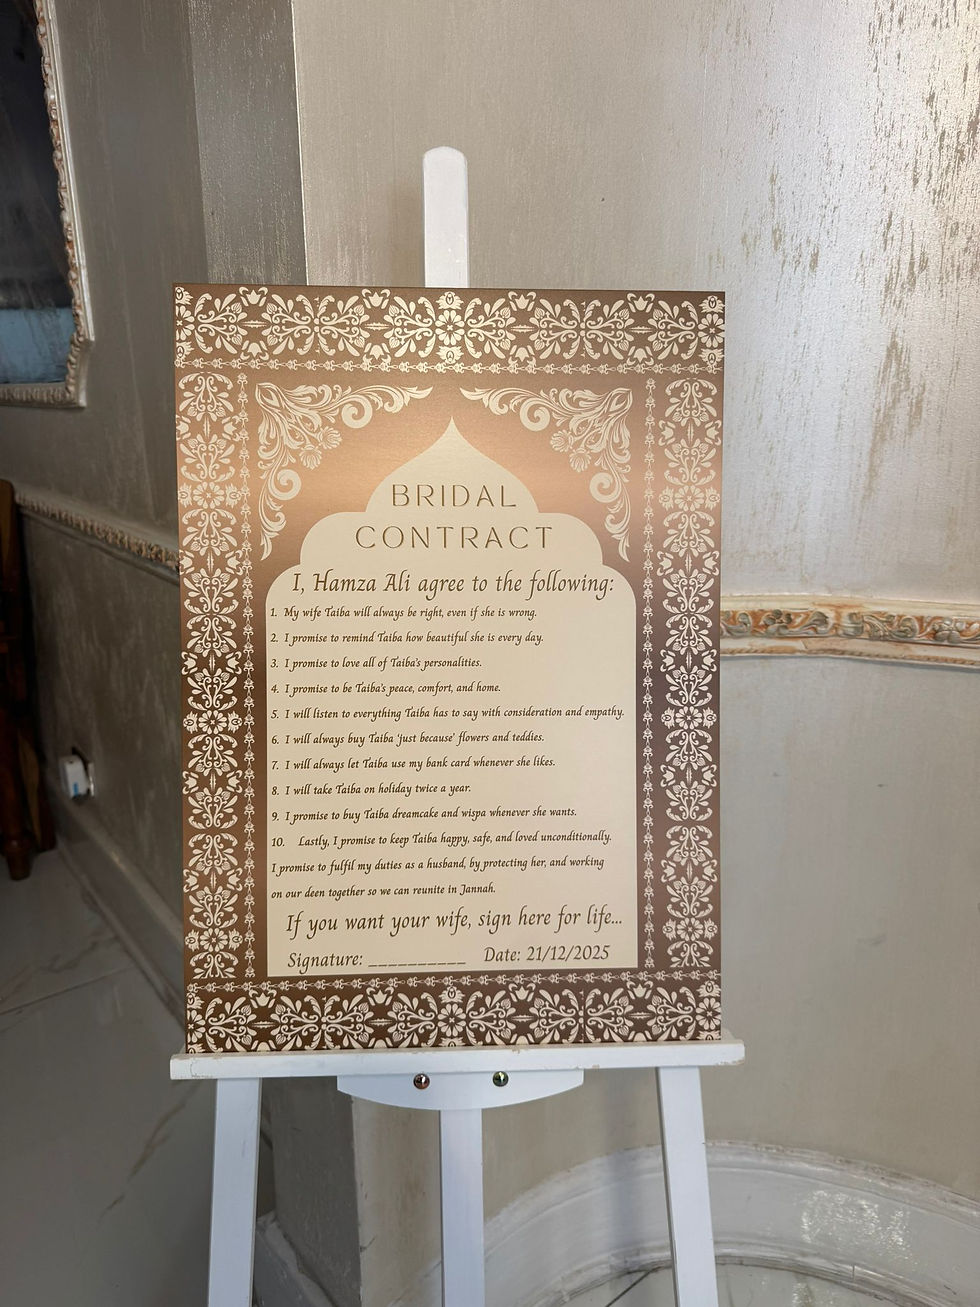 BRIDAL
CONTRACT
I, Hamza Ali agree to the following:
1. My wife Taiba will always be right, even if she is wrong.
2. I promise to remind Taiba how beautiful she is every day.
3. I promise to love all of Taiba's personalities.
4. I promise to be Taiba's peace, comfort, and home.
5. I will listen to everything Taiba has to say with consideration and empathy.
6. I will always buy Taiba 'just because' flowers and teddies.
7. I will always let Taiba use my bank card whenever she likes.
8. I will take Taiba on holiday twice a year.
9. I promise to buy Taiba dreamcake and wispa whenever she wants.
10. Lastly, I promise to keep Taiba happy, safe, and loved unconditionally.
I promise to fulfil my duties as a husband, by protecting her, and working
on our deen together so we can reunite in Jannah.
If you want your wife, sign here for life...
Signature: __________ Date: 21/12/2025